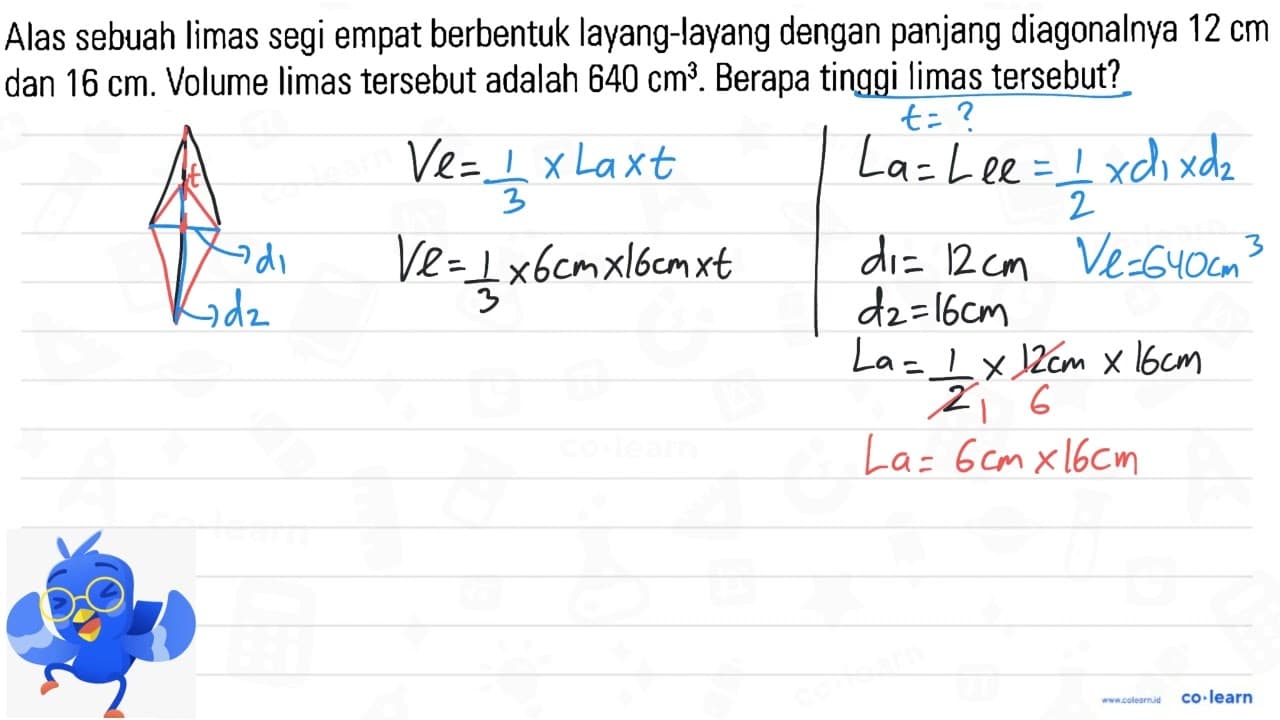 Alas sebuah limas segi empat berbentuk layang-layang dengan panjang diagonalnya 12 cm
dan 16 cm. Volume limas tersebut adalah 640 cm³. Berapa tinggi limas tersebut?
t = ?
t
d1
d2
Vl = 1/3 x La x t
Vl = 1/3 x 6cm x 16cm x t
La = Lll = 1/2 x d1 x d2
d1 = 12 cm Vl = 640cm³
d2 = 16cm
La = 1/2 x 12cm x 16cm
1 6
La = 6cm x 16cm
www.colearn.id co·learn